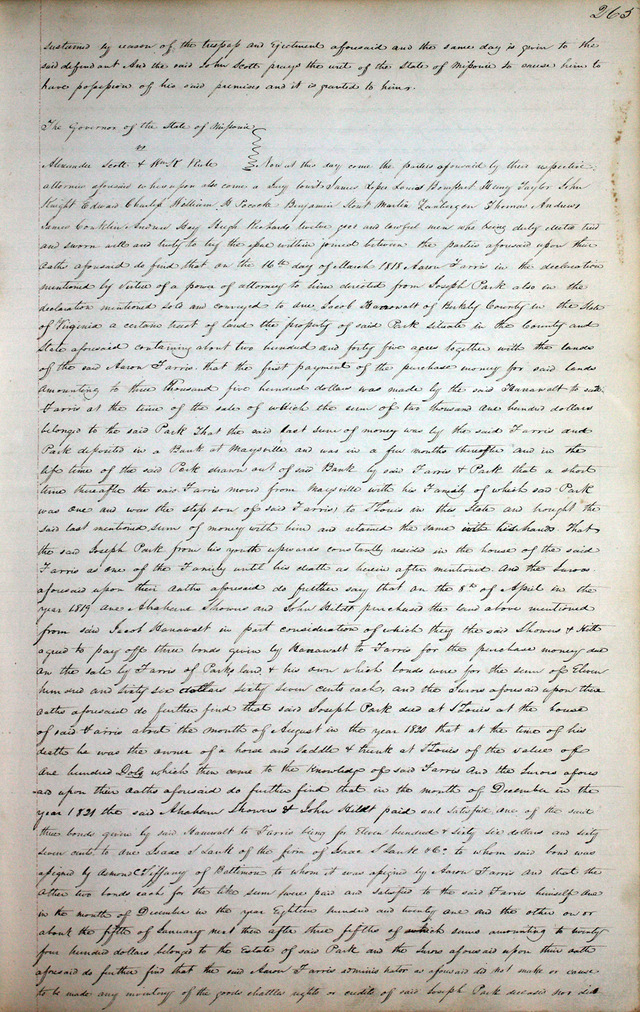 265
sustained by reason of the trespass and Ejectment aforesaid and the same day is given to the
said defendant And the said John Scott prays the writ of the State of Missouri to cause him to
have possession of his said premises and it is granted to him.
The Governor of the State of Missouri
vs
Alexander Scott & Wm K Rule Now at this day come the parties aforesaid by their respective
attornies aforesaid whereupon also come a Jury towit James Louis Henry Taylor John
Knight Edward Charless William H Benjamin Stout Martin Thomas Andrews
James Conklin Andrew Hay Hugh Richards twelve good and lawful men who being duly elected tried
and sworn well and truly to try the issue within joined between the parties aforesaid upon their
oaths aforesaid do find that on the 16th day of March 1818 Aaron Farris in the declaration
mentioned by virtue of a power of attorney to him directed from Joseph Park also in the
declaration mentioned sold and conveyed to one Jacob Hanawalt of Berkely County in the State
of Virginia a certain tract of land the property of said Park situate in the County and
State aforesaid containing about two hundred and forty five acres together with the lands
of the said Aaron Farris that the first payment of the purchase money for said lands
amounting to three thousand five hundred dollars was made by the said Hanawalt to said
Farris at the time of the sale of which the sum of two thousand one hundred dollars
belonged to the said Park That the said last sum of money was by the said Farris and
Park deposited in a Bank at Maysville and was in a few months thereafter and in the
life time of the said Park drawn out of said Bank by said Farris & Park that a short
time thereafter the said Farris moved from Maysville with his Family of which said Park
was one and was the step son of said Farris to St Louis in this State and brought the
said last mentioned sum of money with him and retained the same with his hands That
the said Joseph Park from his youth upwards constantly resided in the house of the said
Farris as one of the Family until his death as herein after mentioned And the Jurors
aforesaid upon their oaths aforesaid do further say that on the 8th of April in the
year 1819 one Abraham Showers and John purchased the land above mentioned
from said Jacob Hanawalt in part consideration of which they the said Showers &
agreed to pay off three bonds given by Hanawalt to Farris for the purchase money due
on the sale by Farris of Parks land & his own which bonds were for the sum of Eleven
hundred and sixty six dollars sixty seven cents each, and the Jurors aforesaid upon their
oaths aforesaid do further find that said Joseph Park died at St Louis at the house
of said Farris about the month of August in the year 1820 that at the time of his
death he was the owner of a horse and saddle & trunk at St Louis of the value of
one hundred Dols which then came to the knowledge of said Farris And the Jurors afores
aid upon their oaths aforesaid do further find that in the month of December in the
year 1821 the said Abraham Showers & John paid and satisfied one of the said
three bonds given by said Hanawalt to Farris being for Eleven hundred & sixty six dollars and sixty
seven cents to one Isaac of the firm of Isaac & Co to whom said bond was
assigned by Tiffany of Baltimore to whom it was assigned by Aaron Farris and that the
other two bonds each for the like sum were paid and satisfied to the said Farris himself one
in the month of December in the year Eighteen hundred and twenty one and the other on or
about the fifth of January next then after three fifths of which sums amounting to twenty
four hundred dollars belonged to the Estate of said Park and the Jurors aforesaid upon their oath
aforesaid do further find that the said Aaron Farris administrator as aforesaid did not make or cause
to be made any inventory of the goods chattles rights or credits of said Joseph Park deceased nor did